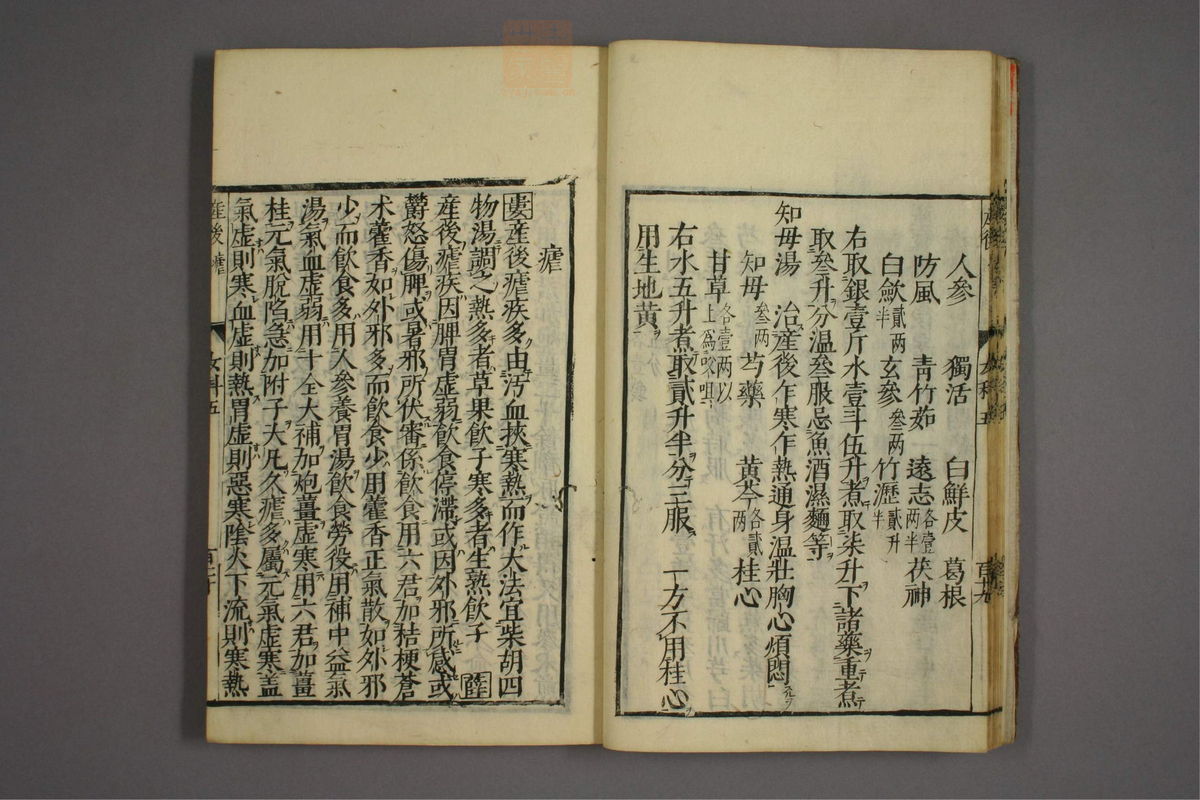 人參　獨活　白鮮皮　葛根
防風　靑竹茹　遠志各壹两半　茯神
白歛貳两半　玄參叁两　竹瀝貳升半
右取銀壹斤水壹斗伍升煮取柒升下諸藥重煮
取叄升分温叄服忌魚酒濕麵等
知母湯　治産後乍寒乍熱通身温壯胸心煩悶
知母叁两　芍藥　黄芩各貳两　桂心
甘草各壹两以上爲㕮咀
右水五升煮取貳升半分三服　一方不用桂心
用生地黄
産後
女科五
百十九
瘧
婁産後瘧疾多由汚血挾寒熱而作大法宜柴胡四
物湯調之熱多者草果飲子寒多者生熟飲子薛
産後瘧疾因脾胃虚弱飲食停滯或因外邪所感或
欝怒傷脾或暑邪所伏審係飲食用六君加桔梗蒼
术藿香如外邪多而飲食少用藿香正氣散如外邪
少而飲食多用人參養胃湯飲食勞役用補中益氣
湯氣血虚弱用十全大補加炮薑虚寒用六君加薑
桂元氣脱陷急加附子大凡久瘧多屬元氣虚寒盖
氣虚則寒血虚則熱胃虚則惡寒陰火下流則寒熱
産後　瘧
女科五